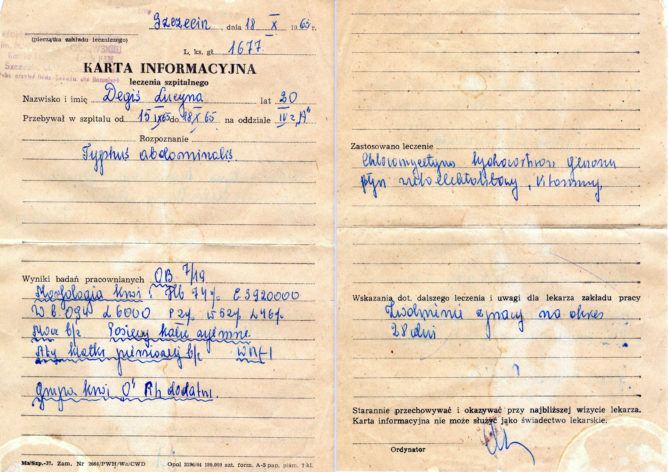 Szczecin, dnia 18 X 1965r.
(pieczątka zakładu leczniczego)
L. ks. gł. 1677.
KARTA INFORMACYJNA
leczenia szpitalnego
Nazwisko i imię Degiś Lucyna lat 20
Przebywał w szpitalu od 15 IX 65 do 18 X 65 na oddziale IV z "A"
Rozpoznanie
Typhus abdominalis.
Wyniki badań pracownianych OB 7/19
Morfologia krwi: Hb 74% E 3920000
Wb. 094 L 6000 P 2% S 52% L 46%
Mocz b/z Posiewy kału ujemne
Rtg klatki piersiowej b/z WR /-/
Grupa krwi O Rh dodatni.
Ma/Szp.-37. Zam. Nr 2664/PWH/Wz/CWD Opol 100.000 szt. form. A-5 pap. piśm. 7 kl.
Zastosowano leczenie
Chloromycetyna hydrocortison glukoza
płyn wieloelektrolitowy, Vitaminy,
Wskazania dot. dalszego leczenia i uwagi dla lekarza zakładu pracy
Zwolnienie z pracy na okres
28 dni
Starannie przechowywać i okazywać przy najbliższej wizycie lekarza.
Karta informacyjna nie może służyć jako świadectwo lekarskie.
Ordynator